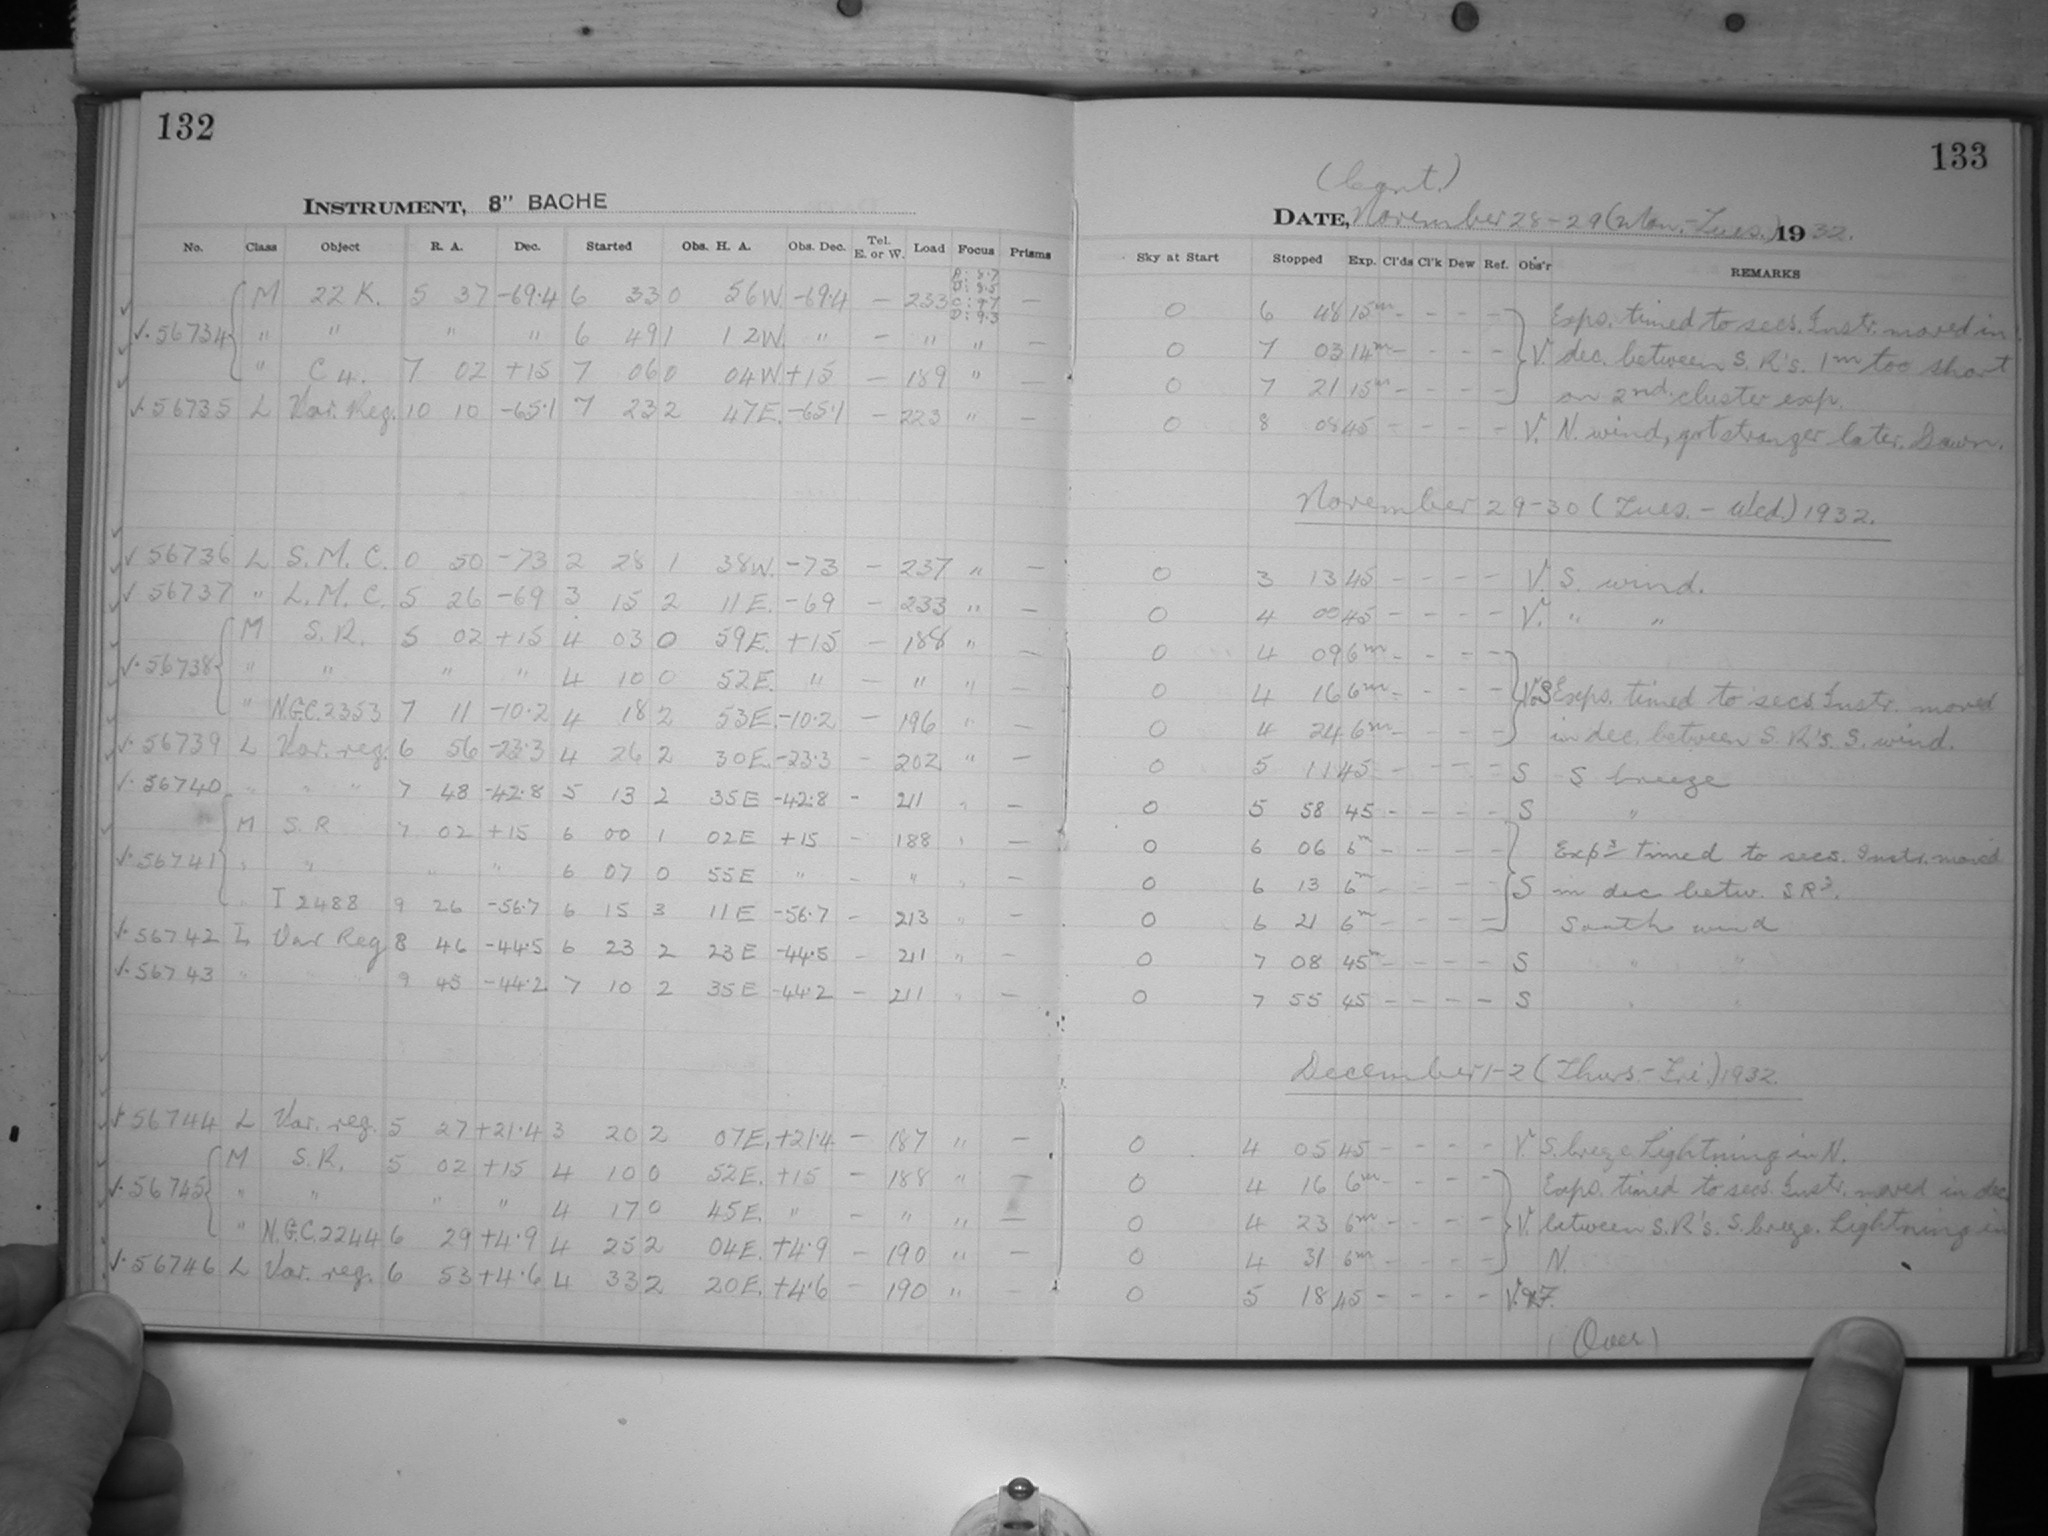 132
INSTRUMENT, 8" BACHE
No. Class Object R. A. Dec. Started Obs. H. A. Obs. Dec. Tel. E. or W. Load Focus Prisms
M 22 K. 5 37 -69.4 6 33 0 56W. -69.4 — 233 A: 8.7 B: 8.5 C: 9.7 D: 9.3 —
✓. 56734 " " " " 6 49 1 12W. " — " " —
" C 4. 7 02 +15 7 06 0 04W +15 — 189 " —
✓. 56735 L Var. Reg. 10 10 -65.1 7 23 2 47E. -65.1 — 223 " —
✓ 56736 L S. M. C. 0 50 -73 2 28 1 38W. -73 — 237 " —
✓ 56737 " L. M. C. 5 26 -69 3 15 2 11E. -69 — 233 " —
M S. R. 5 02 +15 4 03 0 59E. +15 — 188 " —
✓. 56738 " " " " 4 10 0 52E. " — " " —
" N.G.C. 2353 7 11 -10.2 4 18 2 53E. -10.2 — 196 " —
✓. 56739 L Var. reg. 6 56 -23.3 4 26 2 30E. -23.3 — 202 " —
✓. 56740 " " " 7 48 -42.8 5 13 2 35E -42.8 - 211 " —
M S. R 7 02 +15 6 00 1 02E +15 - 188 " —
✓. 56741 " " " " 6 07 0 55E " - " " —
" I 2488 9 26 -56.7 6 15 3 11E -56.7 - 213 " —
✓. 56742 L Var Reg 8 46 -44.5 6 23 2 23E -44.5 - 211 " —
✓. 56743 " " 9 45 -44.2 7 10 2 35E -44.2 — 211 " —
✓ 56744 L Var. reg. 5 27 +21.4 3 20 2 07E. +21.4 — 187 " —
M S. R. 5 02 +15 4 10 0 52E. +15 — 188 "
✓. 56745 " " " " 4 17 0 45E. " — " " —
" N.G.C. 2244 6 29 +4.9 4 25 2 04E. +4.9 — 190 " —
✓. 56746 L Var. reg. 6 53 +4.6 4 33 2 20E. +4.6 — 190 " —
133
(Cont.)
DATE, November 28-29 (Mon.-Tues.) 1932.
Sky at Start Stopped Exp. Cl'ds Cl'k Dew Ref. Obs'r REMARKS
0 6 48 15m - - - - Exps. timed to secs. Instr. moved in
0 7 03 14m - - - - V. dec. between S. R's. 1m too short
0 7 21 15m - - - - on 2nd. cluster exp.
0 8 08 45 - - - - V. N. wind, got stronger later. Dawn.
November 29-30 (Tues. - Wed.) 1932.
0 3 13 45 - - - - V. S. wind.
0 4 00 45 - - - - V. " "
0 4 09 6m - - - -
0 4 16 6m - - - - V.S Exps. timed to secs Instr. moved
0 4 24 6m - - - - in dec. between S. R's. S. wind.
0 5 11 45 - - - - S S breeze
0 5 58 45 - - - - S "
0 6 06 6m - - - - Exps timed to secs. Instr. moved
0 6 13 6m - - - - S in dec betw. S Rs.
0 6 21 6m - - - - South wind
0 7 08 45m - - - - S " "
0 7 55 45 - - - - S " "
December 1-2 (Thurs.-Fri.) 1932.
0 4 05 45 - - - - V. S. breeze Lightning in N.
0 4 16 6m - - - - Exps. timed to secs. Instr. moved in dec
0 4 23 6m - - - - V. between S. R's. S. breeze. Lightning in
0 4 31 6m - - - - N.
0 5 18 45 - - - -
(Over)